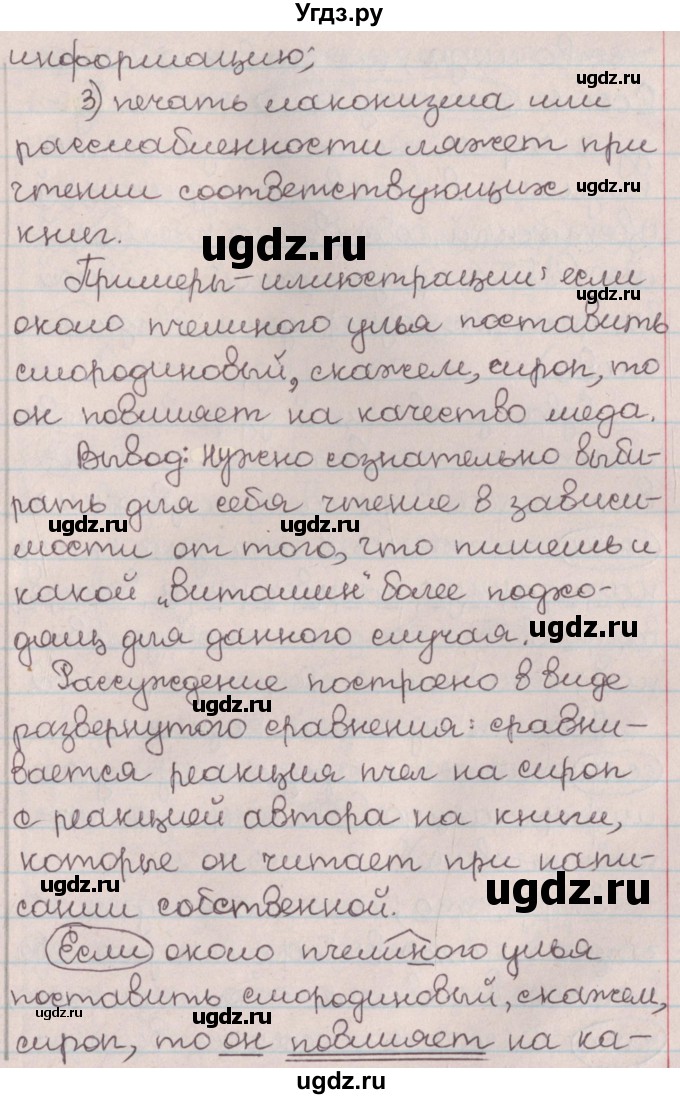 Угдз.ру
информацию;
ugdz.ru
3) печать лаконизма или
расслабленности ляжет при
ugdz.ru
чтении соответствующих
ugdz.ru
книг.
ugdz.ru
Примеры - иллюстрации: если
ugdz.ru
около пчелиного улья поставить
смородиновый, скажем, сироп, то
ugdz.ru
он повлияет на качество меда.
Вывод: Нужно сознательно выби-
ugdz.ru
рать для себя чтение в зависи-
ugdz.ru ugdz.ru
мости от того, что пишешь и
какой „витамин“ более подхо-
дящ для данного случая.
ugdz.ru
Рассуждение построено в виде
ugdz.ru
развернутого сравнения: сравни-
ugdz.ru
вается реакция пчел на сироп
с реакцией автора на книги,
которые он читает при напи-
ugdz.ru ugdz.ru
сании собственной.
Если около пчелиного улья
поставить смородиновый, скажем,
ugdz.ru ugdz.ru ugdz.ru
сироп, то он повлияет на ка-
ugdz.ru